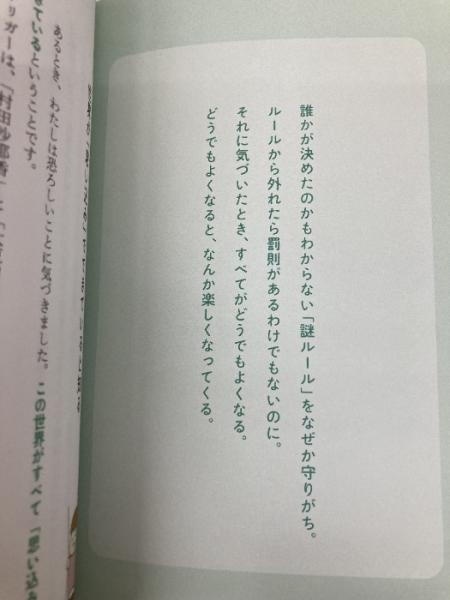 誰かが決めたのかもわからない「謎ルール」をなぜか守りがち。
ルールから外れたら罰則があるわけでもないのに。
それに気づいたとき、すべてがどうでもよくなる。
どうでもよくなると、なんか楽しくなってくる。
あるとき、わたしは恐ろしいことに気づきました。この世界がすべて「思い込み
きているということです。
リガーは、「村田沙耶香」